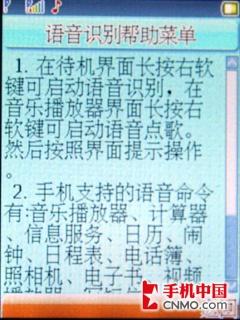 语音识别帮助菜单
1. 在待机界面长按右软
键可启动语音识别，在
音乐播放器界面长按右
右软键可启动语音点歌。
然后按照界面提示操作
。
2. 手机支持的语音命令
有:音乐播放器、计算器
、信息服务、日历、闹
钟、日程表、电话簿、
照相机、电子书、视频
手机中国
CNMO.com